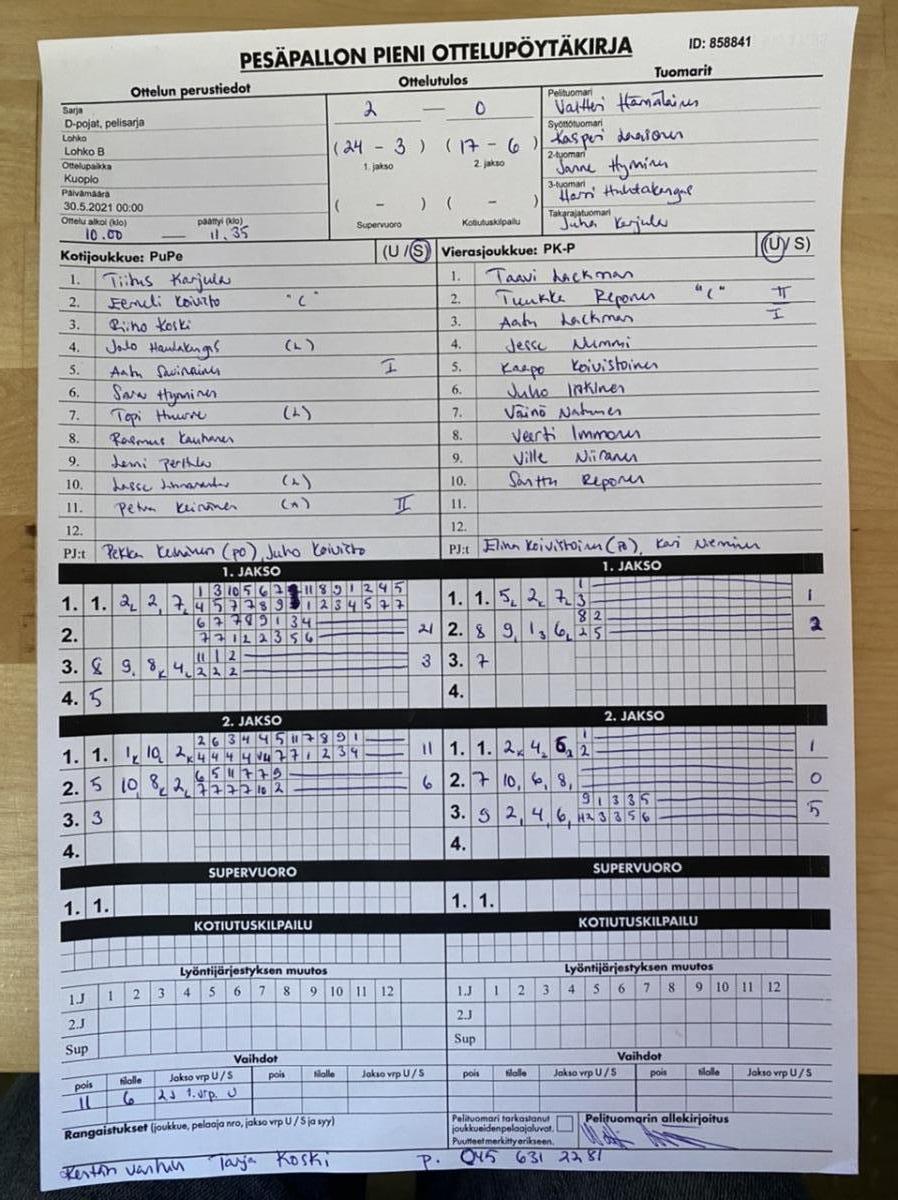 PESÄPALLON PIENI OTTELUPÖYTÄKIRJA
ID: 858841
Ottelun perustiedot
Sarja
D-pojat, pelisarja
Lohko
Lohko B
Ottelupaikka
Kuopio
Päivämäärä
30.5.2021 00:00
Ottelu alkoi (klo) päättyi (klo)
10.00 — 11.35
Ottelutulos
2 — 0
(24 - 3) (17 - 6)
1. jakso 2. jakso
( - ) ( - )
Supervuoro Kotiutuskilpailu
Tuomarit
Pelituomari
Valtteri Hämäläinen
Syöttötuomari
Kasperi
2-tuomari
Janne Hyninen
3-tuomari
Harri Huhtakangas
Takarajatuomari
Juha Karjula
Kotijoukkue: PuPe (U / S)
1. Tiitus Karjula
2. Eemeli Koivisto "C"
3. Riiho Koski
4. (L)
5. Aatu I
6. Hynninen
7. Topi (L)
8. Rasmus Kauhanen
9. Lenni
10. Lasse (L)
11. Petra Keinonen II
12.
PJ:t Pekka (PO), Juho Koivisto
Vierasjoukkue: PK-P (U / S)
1. Taavi Lackman
2. Tuukka Reponen "C" II
3. Aatu Lackman I
4. Jesse Nummi
5. Kaapo Koivistoinen
6. Juho
7. Väinö
8. Veerti Immonen
9. Ville Niiranen
10. Santtu Reponen
11.
12.
PJ:t Elina Koivistoinen, Kari Nieminen
1. JAKSO
1 3 10 5 6 7 11 8 9 1 2 4 5
1. 1. 2L 2, 7,
4 5 7 7 8 9 1 2 3 4 5 7 7
6 7 7 8 9 1 3 4
2. 21
7 7 1 2 2 3 5 6
11 1 2
3. 8 9, 8K 4L 3
2 2 2
4. 5
1. JAKSO
1
1. 1. 5L 2L 7L 3 1
8 2
2. 8 9, 13 6L 2 5 2
3. 7
4.
2. JAKSO
2 6 3 4 4 5 11 7 8 9 1
1. 1. 1K 10, 2K 11
6 5 11 7 7 9
2. 5 10, 8L 2, 6
7 7 7 7 10 2
3. 3
4.
2. JAKSO
1
1. 1. 2K 4L 6 2 1
2. 7 10, 6, 8, 0
9 1 3 3 5
3. 9 2, 4, 6, 5
4.
SUPERVUORO
1. 1.
SUPERVUORO
1. 1.
KOTIUTUSKILPAILU
KOTIUTUSKILPAILU
Lyöntijärjestyksen muutos
1.J 1 2 3 4 5 6 7 8 9 10 11 12
2.J
Sup
Lyöntijärjestyksen muutos
1.J 1 2 3 4 5 6 7 8 9 10 11 12
2.J
Sup
Vaihdot
pois tilalle Jakso vrp U / S pois tilalle Jakso vrp U / S
11 6 2J 1.vrp. U
Vaihdot
pois tilalle Jakso vrp U / S pois tilalle Jakso vrp U / S
Rangaistukset (joukkue, pelaaja nro, jakso vrp U / S ja syy)
Pelituomari tarkastanut
joukkueidenpelaajaluvat.
Puutteet merkitty erikseen.
Pelituomarin allekirjoitus
Kentän vanhin Tarja Koski P. 045 631 2281